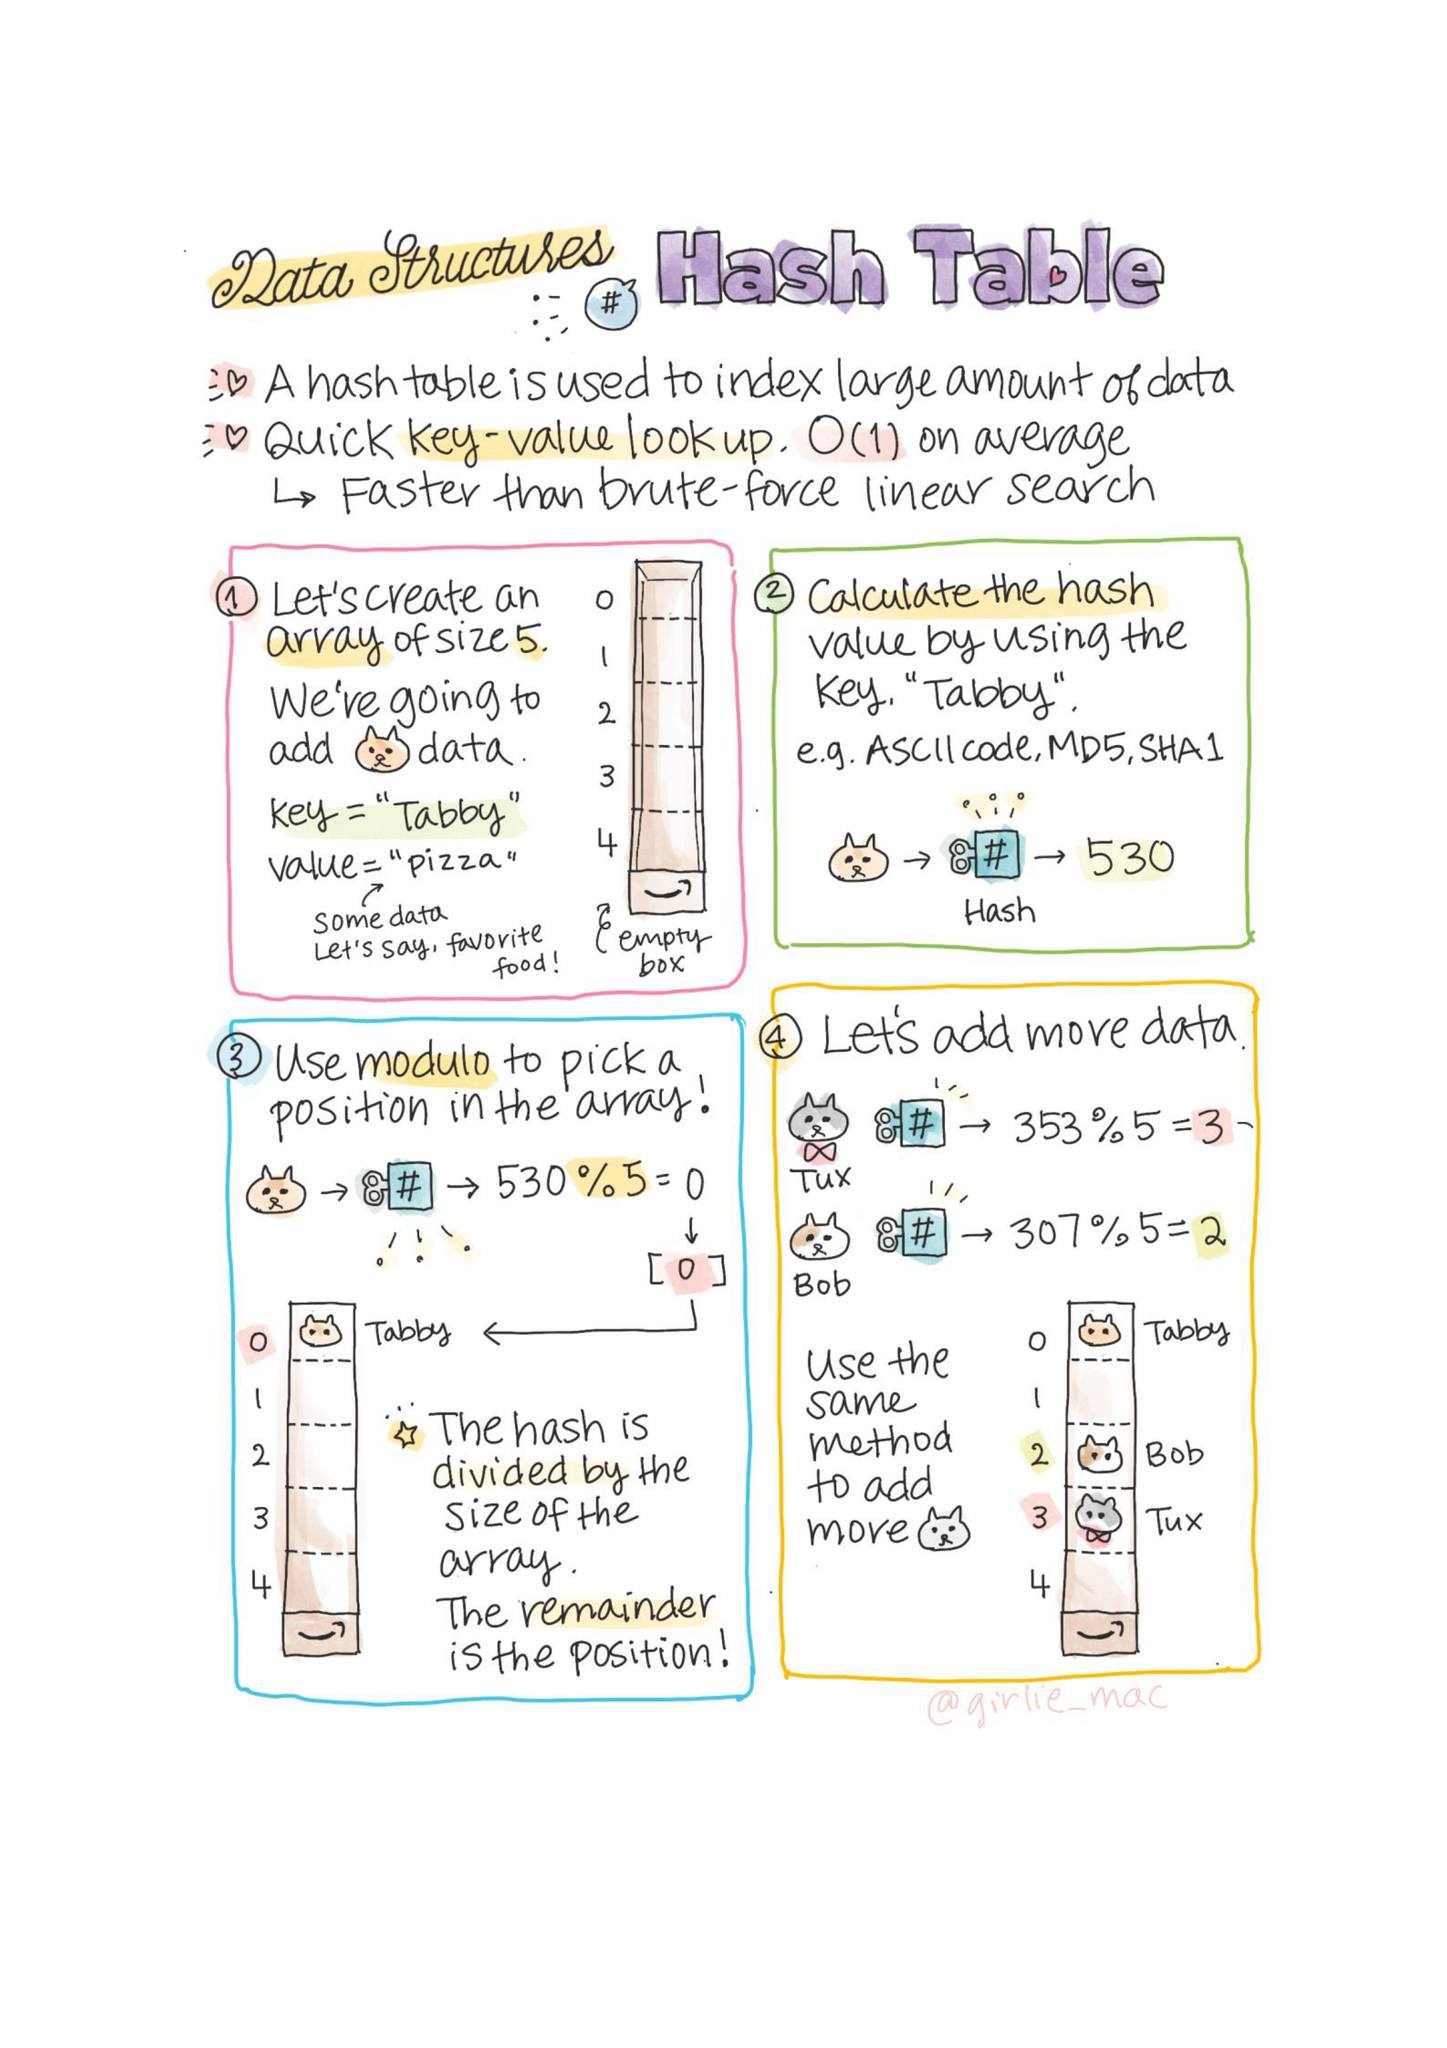 Data Structures
#
Hash Table
A hash table is used to index large amount of data
Quick key-value look up. O(1) on average
↳ Faster than brute-force linear search
① Let's create an
array of size 5.
We're going to
add data.
key = "Tabby"
value = "pizza"
Some data
Let's say, favorite
food!
0
1
2
3
4
empty
box
② Calculate the hash
value by using the
key, "Tabby".
e.g. ASCII code, MD5, SHA1
→ # → 530
Hash
③ Use modulo to pick a
position in the array!
→ # → 530 % 5 = 0
↓
[0]
0 Tabby ←
1
2
3
4
☆ The hash is
divided by the
size of the
array.
The remainder
is the position!
④ Let's add more data.
# → 353 % 5 = 3 -
Tux
# → 307 % 5 = 2
Bob
Use the
same
method
to add
more
0 Tabby
1
2 Bob
3 Tux
4
@girlie_mac